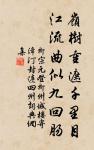 嶺樹重遮千里目
江流曲似九回腸
柳宗元登柳州城樓寄
漳汀封連四州詞典網
集